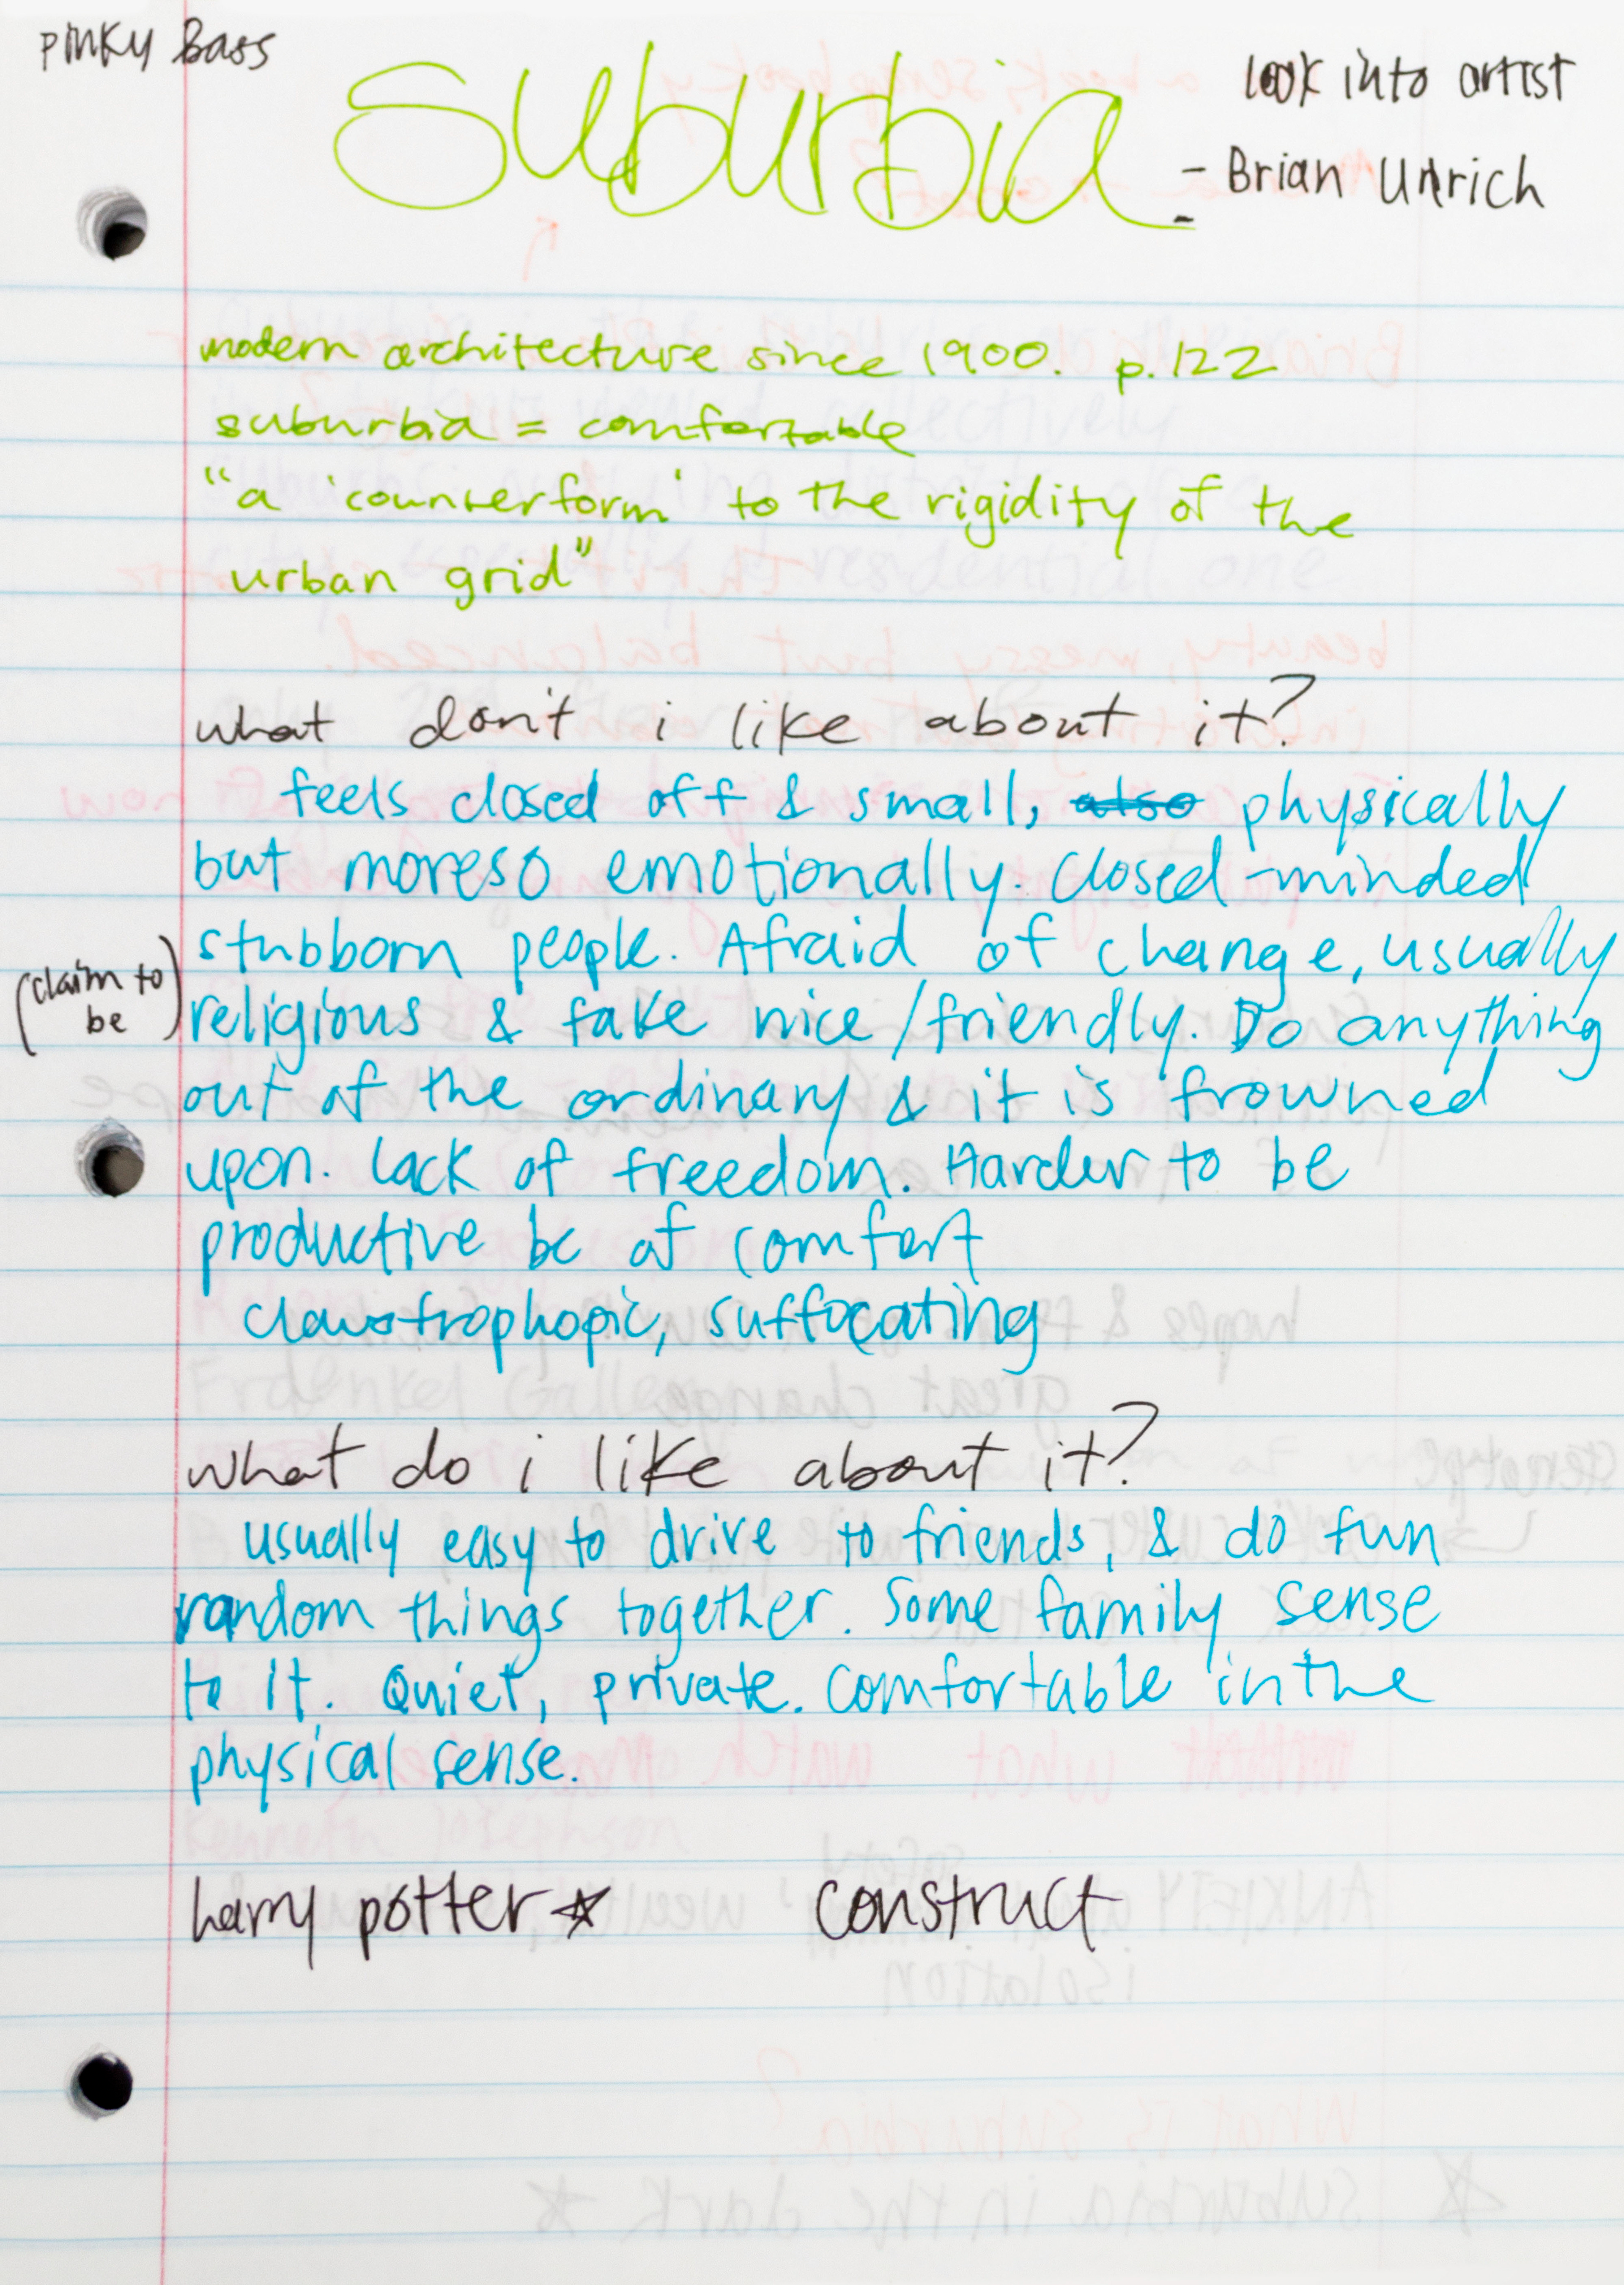 pinky Bass
look into artist
suburbia
- Brian Unrich
-
modern architecture since 1900. p. 122
suburbia = comfortable
"a 'counterform' to the rigidity of the
urban grid"
what don't i like about it?
feels closed off & small, also physically
but moreso emotionally. closed-minded
stubborn people. Afraid of change, usually
(claim to be)
religious & fake nice/friendly. Do anything
out of the ordinary & it is frowned
upon. Lack of freedom. Harder to be
productive bc of comfort
claustrophopic, suffocating
what do i like about it?
usually easy to drive to friends, & do fun
random things together. Some family sense
to it. Quiet, private. Comfortable in the
physical sense.
harry potter☆ construct
What is suburbia?
☆ suburbia in the dark ☆